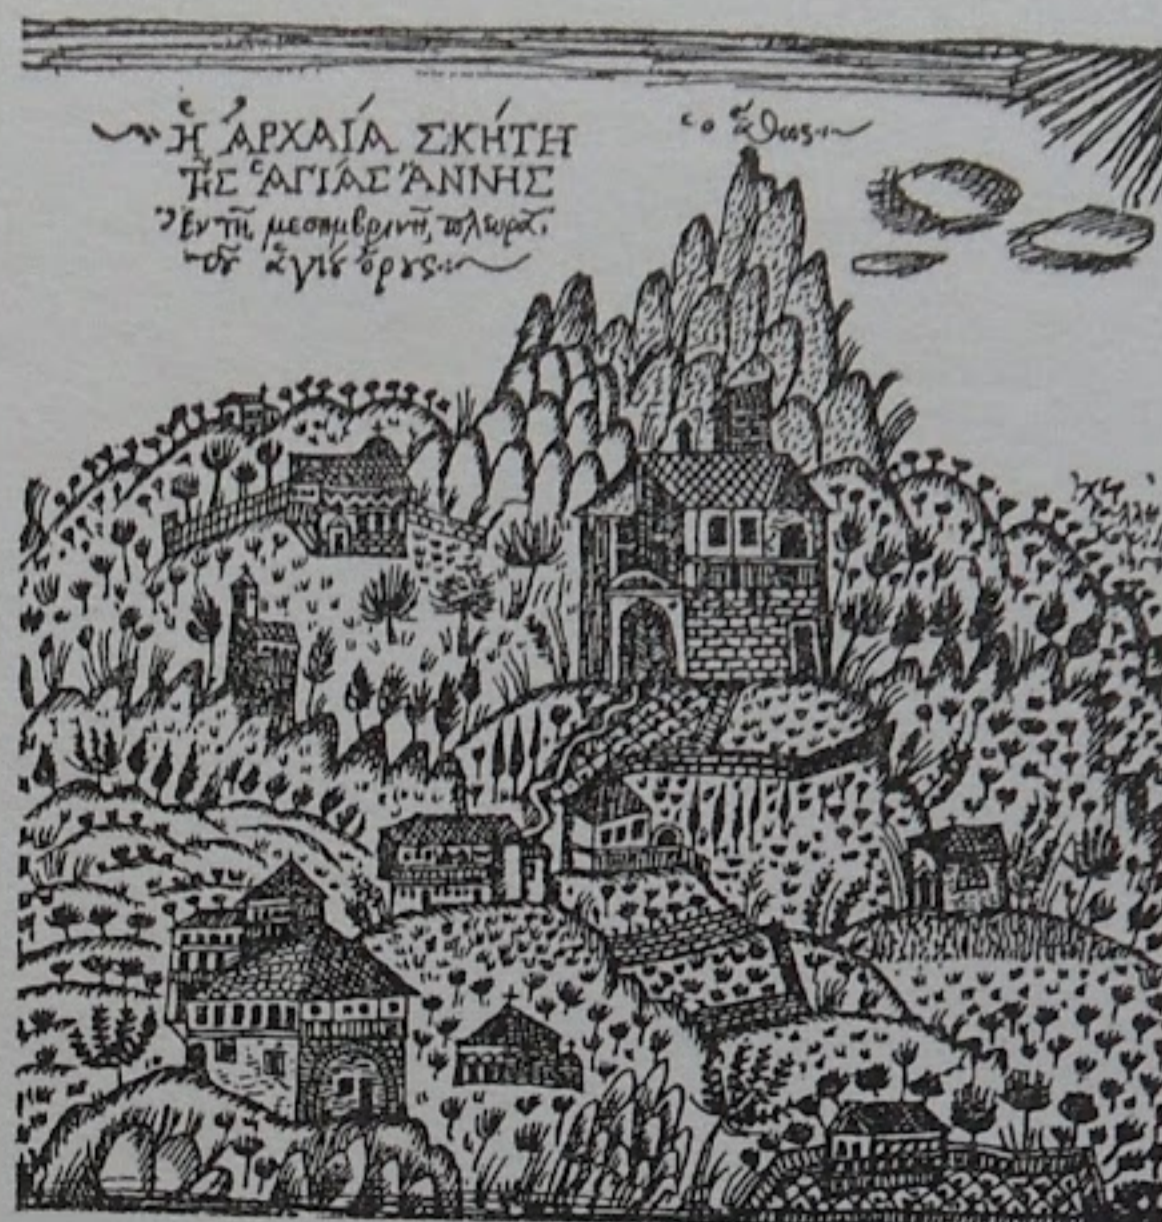 Ἡ ἈΡΧΑΊΑ ΣΚΉΤΗ
ΤΗ͂Σ ἉΓΊΑΣ ἌΝΝΗΣ
Ἐν τῇ μεσημβρινῇ πλευρᾷ
τοῦ ἁγίου ὄρους
ὁ ἄθως